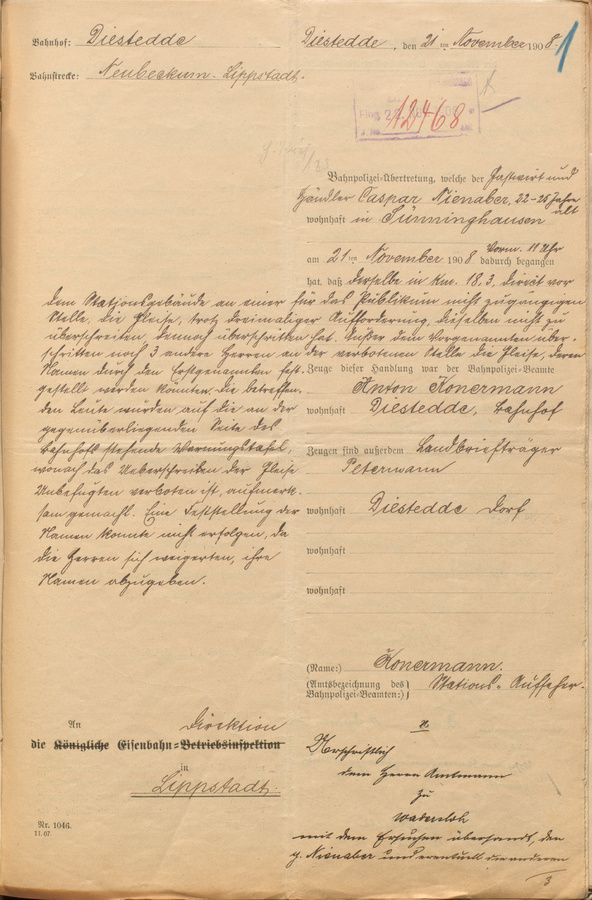 Bahnhof: Diestedde
Diestedde, den 21ten November 1908.
1
Bahnstrecke: Neubeckum-Lippstadt.
Eing. 2
12468
Bahnpolizei-Übertretung, welche der Gastwirt und
Händler Caspar Nienaber, 22-25 Jahre alt
wohnhaft in Sünninghausen
am 21ten November 1908 Vorm. 11 Uhr dadurch begangen
hat, daß derselbe in km. 18,3, direkt vor
dem Stationsgebäude an einer für das Publikum nicht zugängigen
Stelle, die Gleise, trotz dreimaliger Aufforderung, dieselben nicht zu
überschreiten, dennoch überschritten hat. Außer dem Vorgenannten über-
schritten noch 3 andere Herren an der verbotenen Stelle die Gleise, deren
Namen durch den Erstgenannten fest-
gestellt werden könnten. Die betreffen-
den Leute wurden auf die an der
gegenüberliegenden Seite des
Bahnhofs stehende Warnungstafel,
wonach das Ueberschreiten der Gleise
Unbefugten verboten ist, aufmerk-
sam gemacht. Eine Feststellung der
Namen konnte nicht erfolgen, da
die Herren sich weigerten, ihre
Namen abzugeben.
Zeuge dieser Handlung war der Bahnpolizei-Beamte
Anton Konermann
wohnhaft Diestedde, Bahnhof
Zeugen sind außerdem Landbriefträger
Petermann
wohnhaft Diestedde Dorf
wohnhaft
wohnhaft
(Name:) Konermann.
(Amtsbezeichnung des Bahnpolizei-Beamten:) Stations-Aufseher.
An Direktion
die Königliche Eisenbahn-Betriebsinspektion
in
Lippstadt.
Nr. 1046.
11. 07.
Urschriftlich
dem Herrn Amtmann
zu
Wadersloh
mit dem Ersuchen übersandt, den
p. Nienaber und eventuell die anderen
3